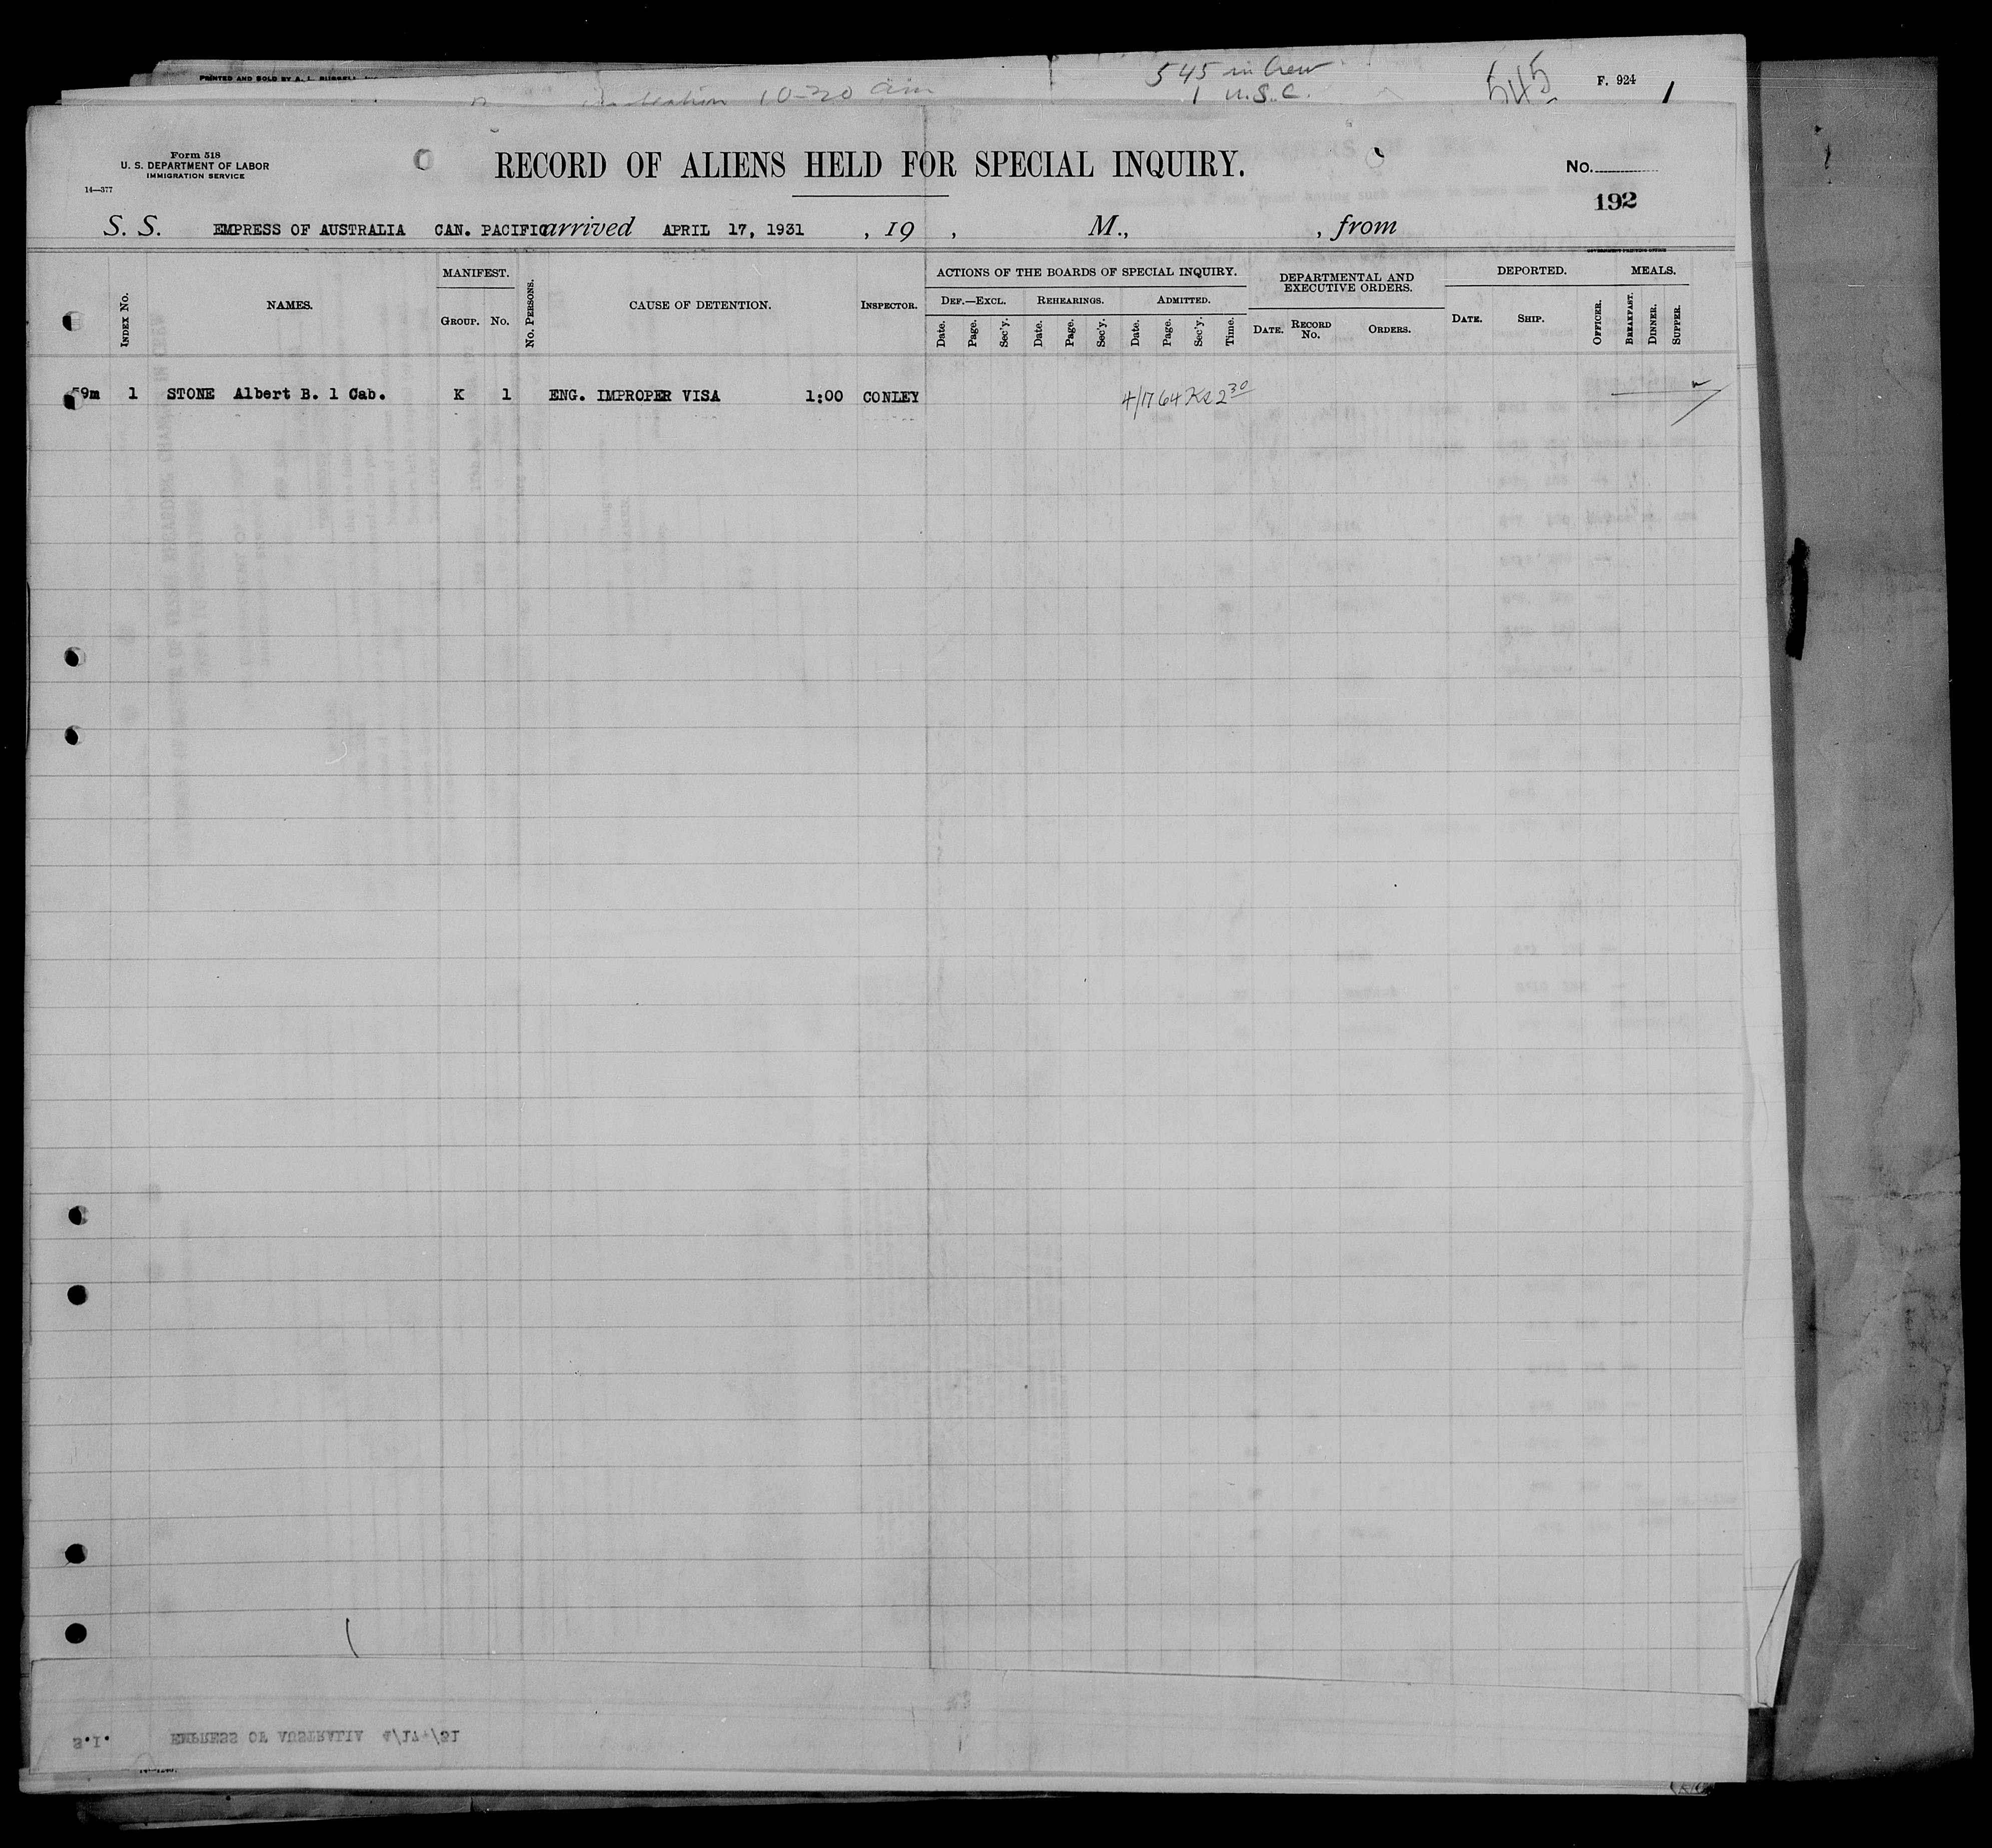 PRINTED AND SOLD BY A. L. RUSSELL
10-20 am
545 in Crew
1 U.S.C.
545
F. 924
1
Form 518
U. S. DEPARTMENT OF LABOR
IMMIGRATION SERVICE
14—377
RECORD OF ALIENS HELD FOR SPECIAL INQUIRY.
No.
192
S. S. EMPRESS OF AUSTRALIA CAN. PACIFIC arrived APRIL 17, 1931 , 19 , M., , from
GOVERNMENT PRINTING OFFICE
MANIFEST. ACTIONS OF THE BOARDS OF SPECIAL INQUIRY. DEPARTMENTAL AND EXECUTIVE ORDERS. DEPORTED. MEALS.
Index No. NAMES. Group. No. No. Persons. CAUSE OF DETENTION. Inspector. Def.—Excl. Rehearings. Admitted.
Date. Page. Sec'y. Date. Page. Sec'y. Date. Page. Sec'y. Time. Date. Record No. Orders. Date. Ship. Officer. Breakfast. Dinner. Supper.
59m 1 STONE Albert B. 1 Cab. K 1 ENG. IMPROPER VISA 1:00 CONLEY 4/17 64 Ke 2 30
S.I. EMPRESS OF AUSTRALIA 4/17/31